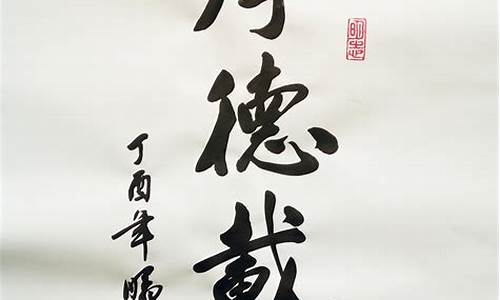 厚德載
丁酉年